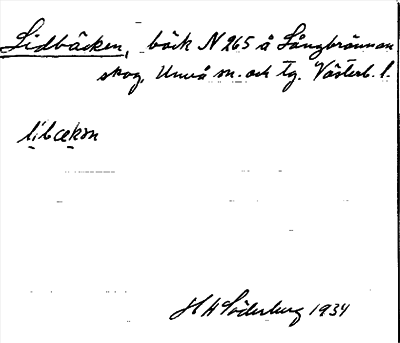 Lidbäcken, bäck N 265 å Långbrännan
skog, Umeå sn. och tg. Västerb. l.
li̱bæ̱kɷn
H A Söderberg 1934